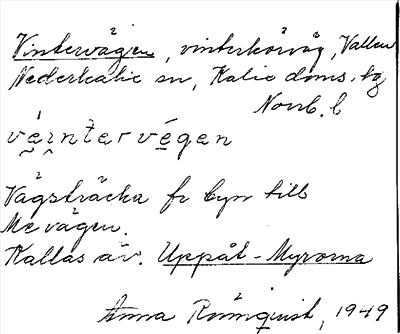 Vintervägen, vinterkörväg, Vallen
Nederkalix sn, Kalix doms. tg
Norrb. l
véintervégen
Vägsträcka fr byn till
Mevägen.
Kallas äv. Uppåt-Myrorna
Anna Rönnquist, 1949